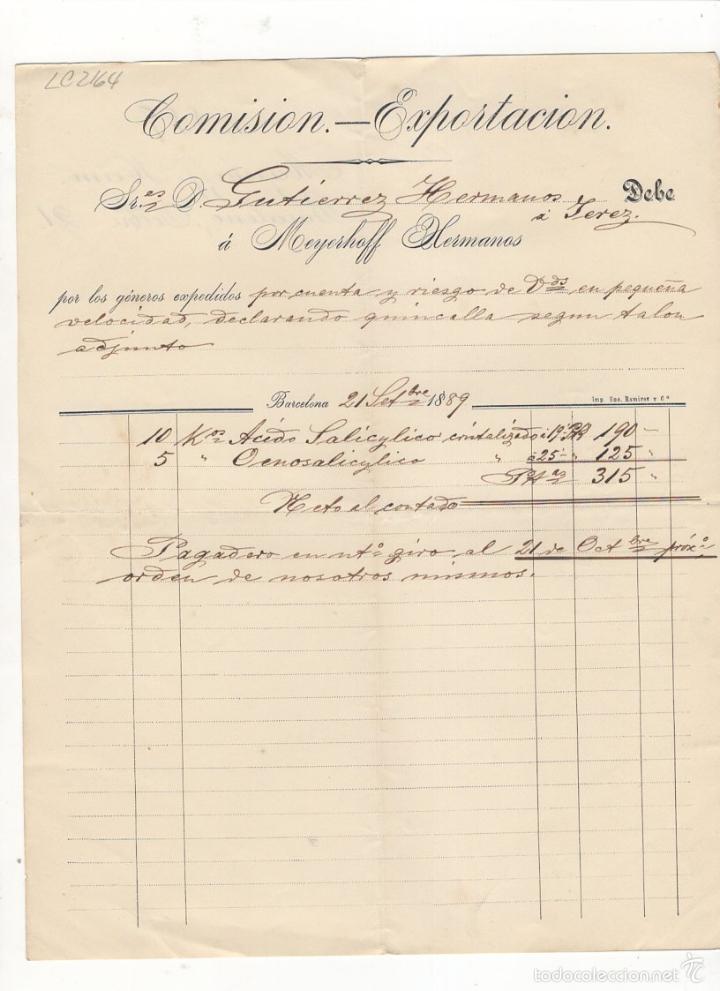 LC2164
Comision.—Exportacion.
Sr.es D. Gutierrez Hermanos Debe
á Jerez.
á Meyerhoff Hermanos
por los géneros expedidos por cuenta y riesgo de Vds en pequeña
velocidad, declarando quincalla segun talon
adjunto
Barcelona 21 Setbre 1889 Imp. Suc. Ramirez y C.ª
10 Kos Acido Salicylico cristalizado á 19- 190 -
5 " Oenosalicylico " á 25- " 125 "
Ptas 315 "
Neto al contado
Pagadero en nto giro al 21 de Octbre próxo
orden de nosotros mismos.
todocoleccion.net